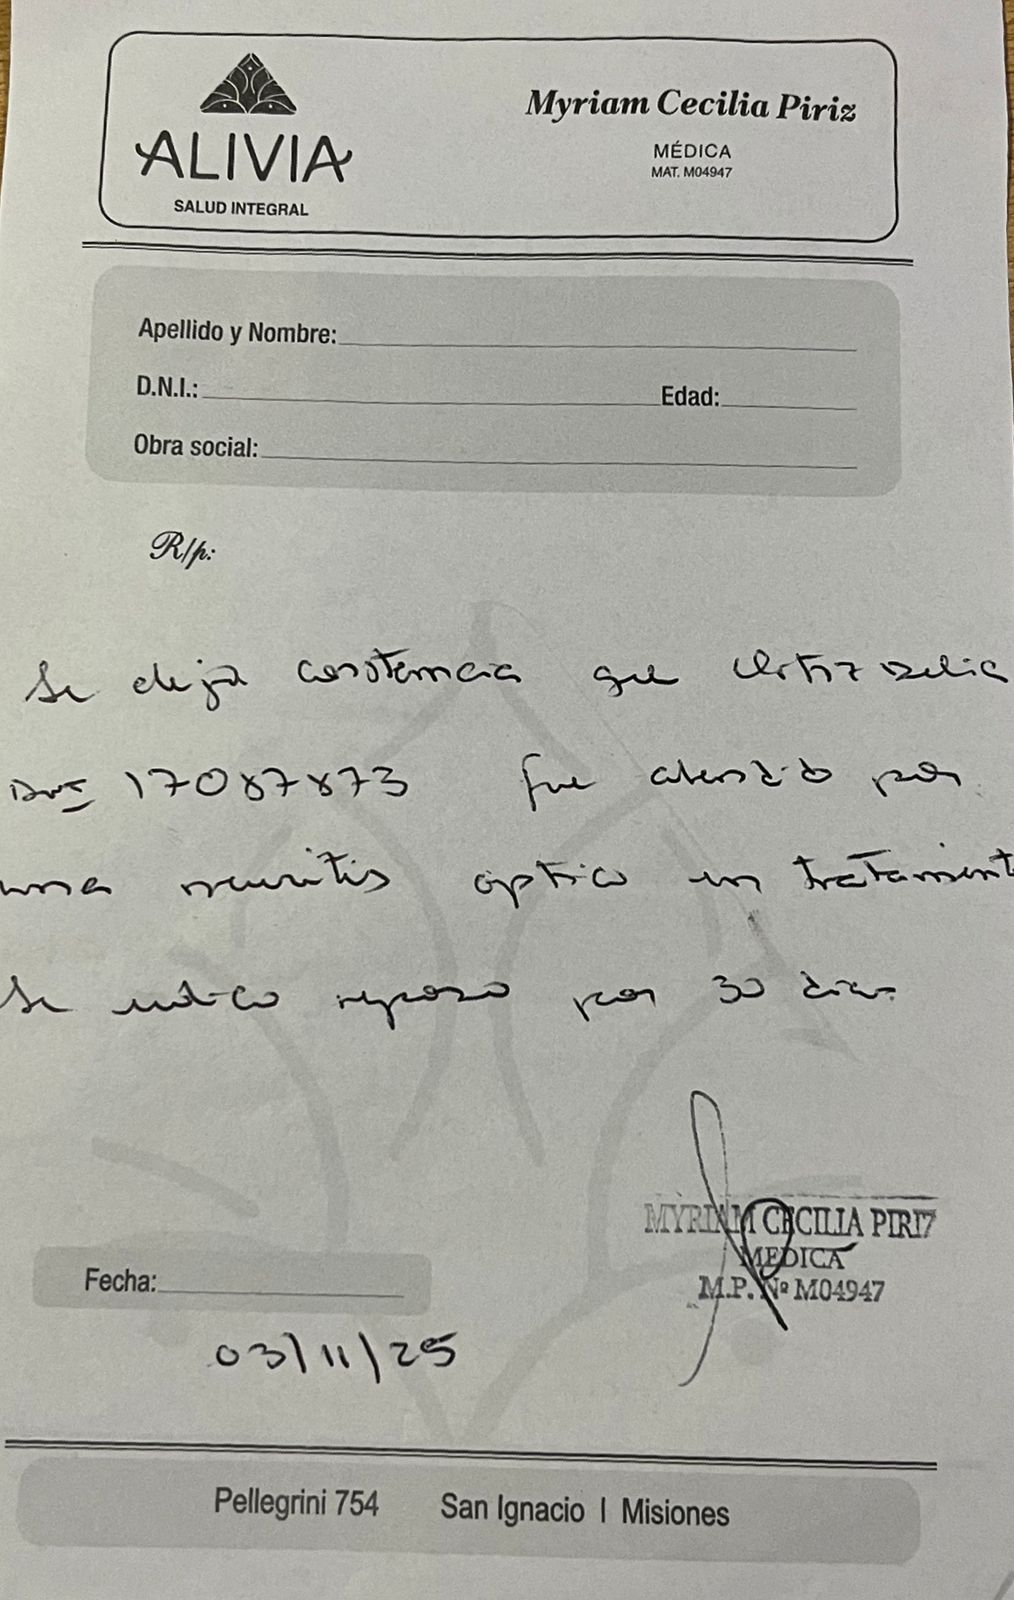 ALIVIA
SALUD INTEGRAL
Myriam Cecilia Piriz
MÉDICA
MAT. M04947
Apellido y Nombre:
D.N.I.:
Edad:
Obra social:
R/p:
Se deja constancia que Delia
DNI 17087873 fue atendido por
una neuritis optica en tratamient
Se indico reposo por 30 dias.
MYRIAM CECILIA PIRIZ
MEDICA
M.P. Nº M04947
Fecha:
03/11/25
Pellegrini 754 San Ignacio | Misiones